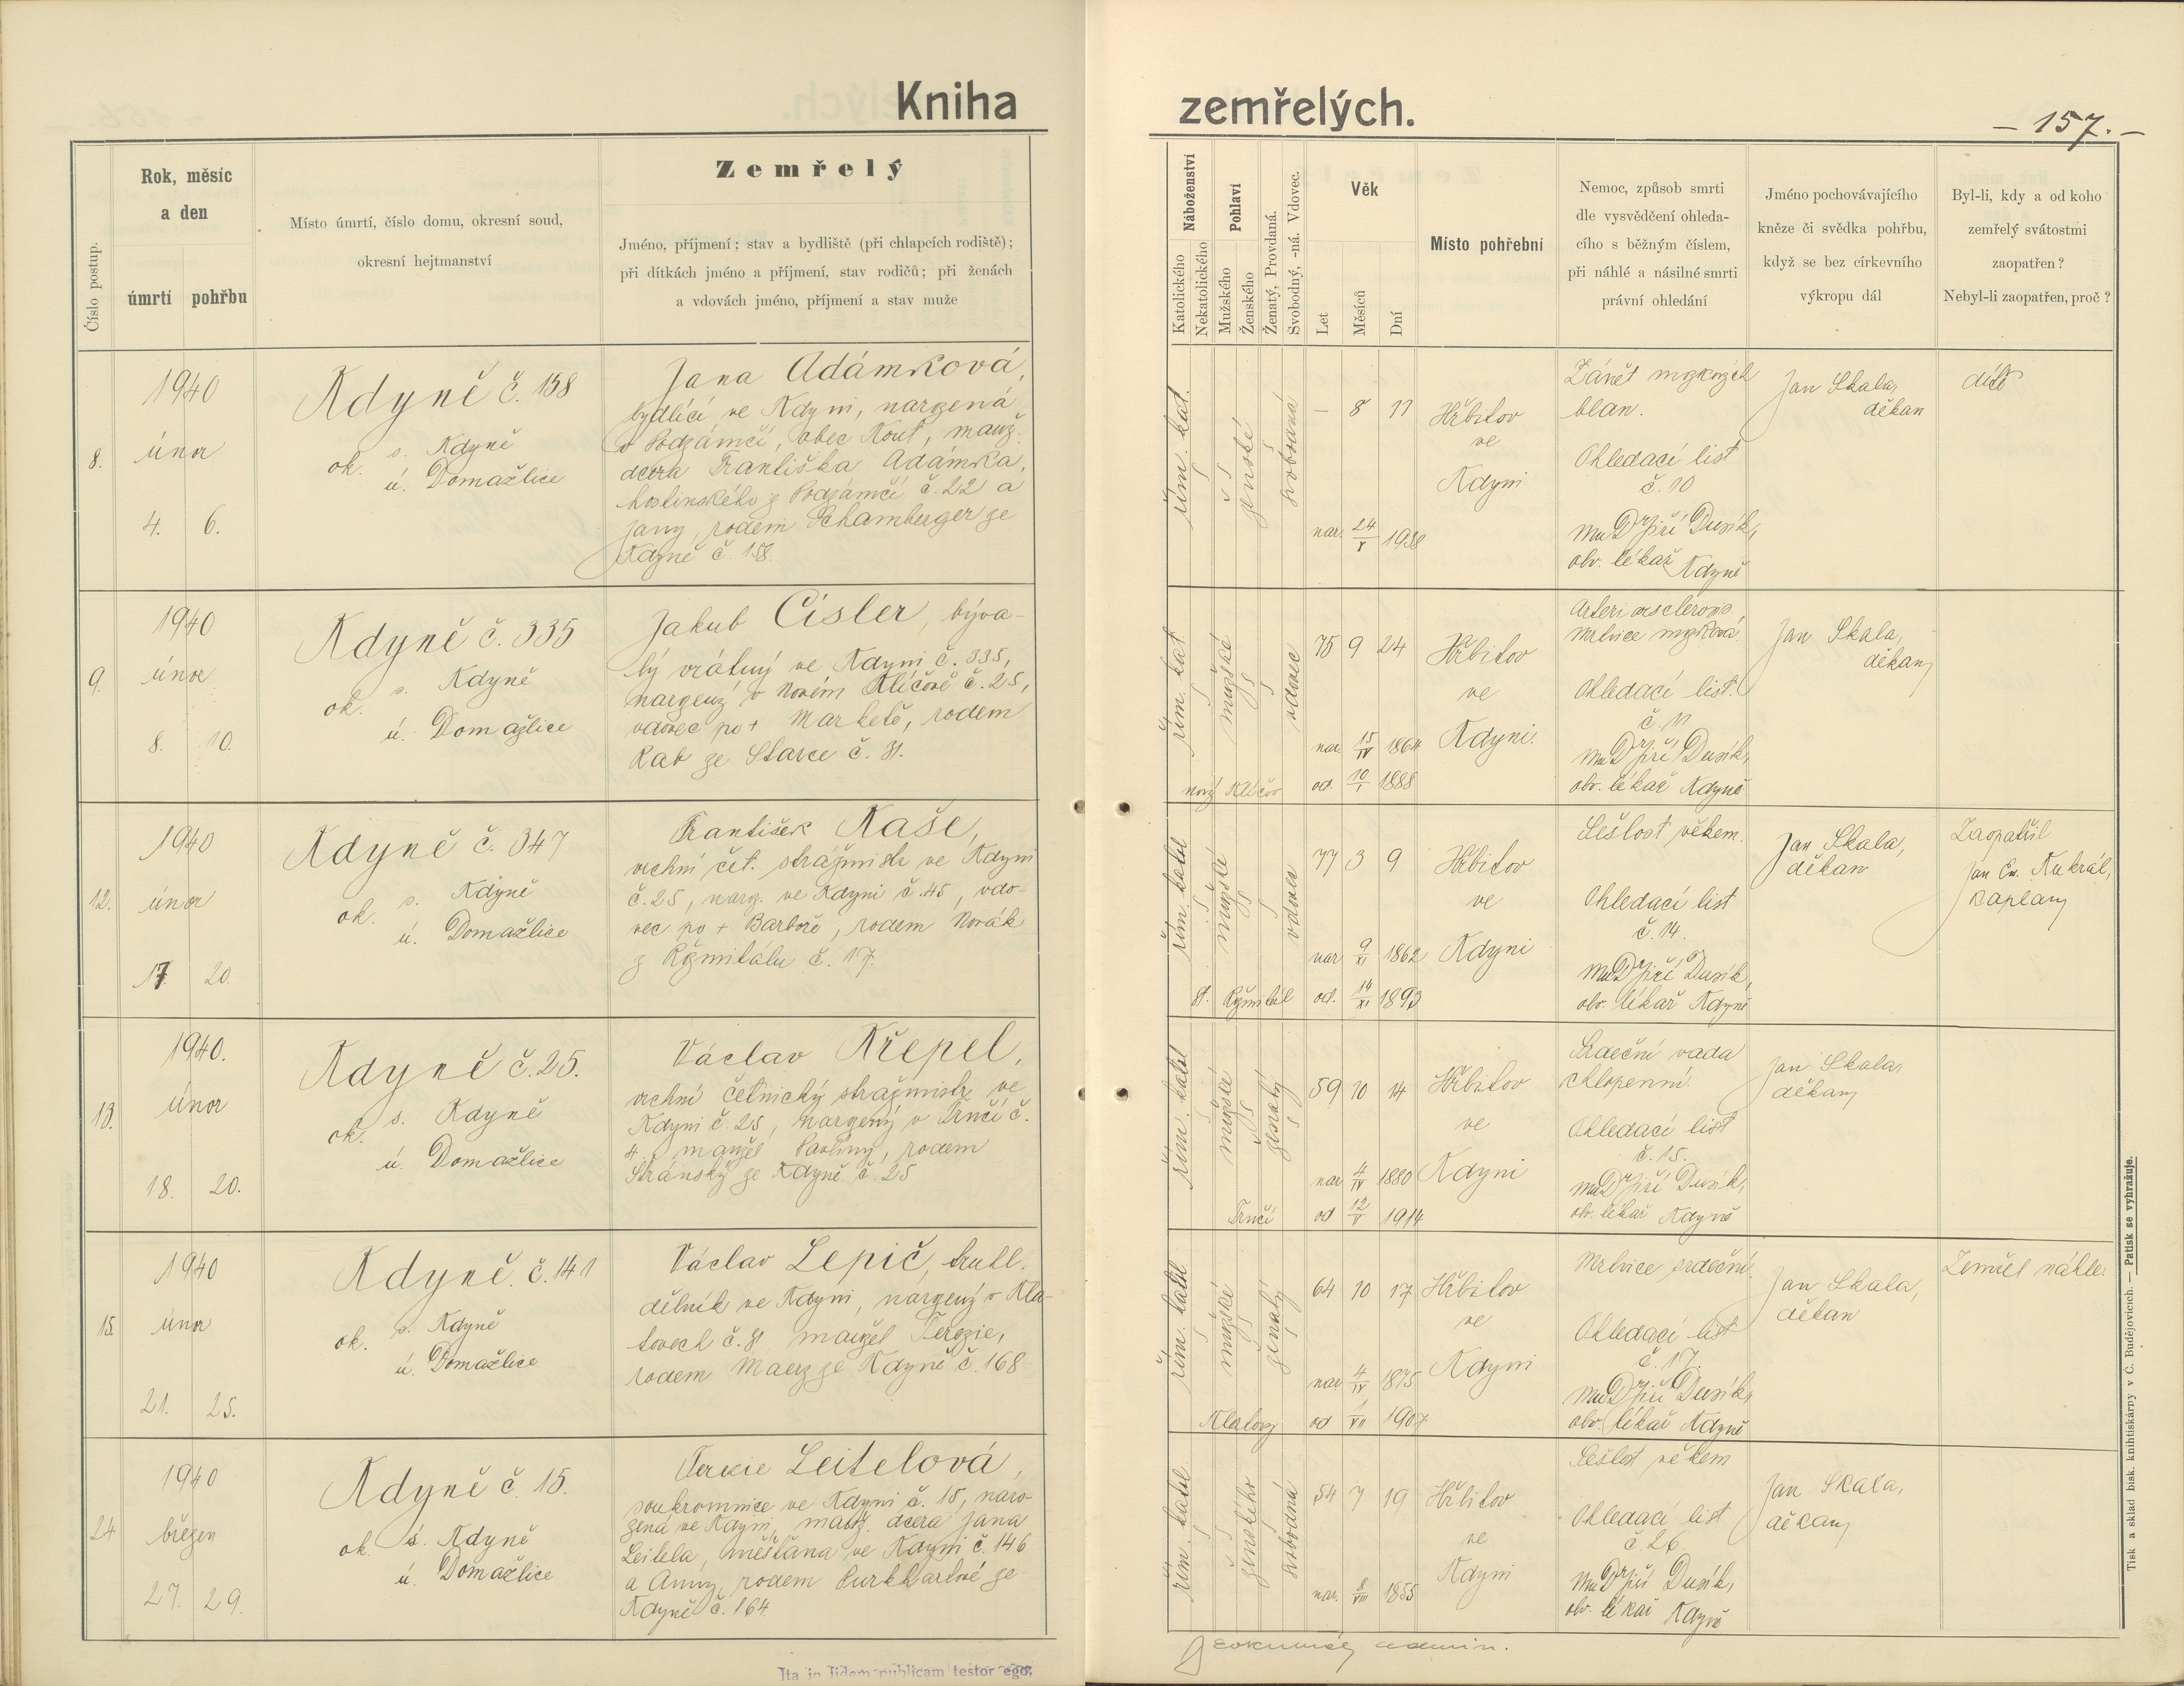 Kniha
zemřelých.
— 157. —
Číslo postup.
Rok, měsíc
a den
úmrtí pohřbu
Místo úmrtí, číslo domu, okresní soud,
okresní hejtmanství
Zemřelý
Jméno, příjmení; stav a bydliště (při chlapcích rodiště);
při dítkách jméno a příjmení, stav rodičů; při ženách
a vdovách jméno, příjmení a stav muže
Náboženství
Katolického
Nekatolického
Pohlaví
Mužského
Ženského
Ženatý, Provdaná.
Svobodný, -ná. Vdovec.
Věk
Let
Měsíců
Dní
Místo pohřební
Nemoc, způsob smrti
dle vysvědčení ohleda-
cího s běžným číslem,
při náhlé a násilné smrti
právní ohledání
Jméno pochovávajícího
kněze či svědka pohřbu,
když se bez církevního
výkropu dál
Byl-li, kdy a od koho
zemřelý svátostmi
zaopatřen?
Nebyl-li zaopatřen, proč?
8.
1940
únor
4. 6.
Kdyně č. 158
ok. s. Kdyně
ú. Domažlice
Jana Adámková,
bydlící ve Kdyni, narzená
v Podzámčí, obec Kout, manž.
dcera Františka Adámka,
hostinského z Podzámčí č. 22 a
Jany, rodem Schamberger ze
Kdyně č. 158.
řím. kat.
ženské
svobodná
— 8 11
nar. 24/V 1938
Hřbitov
ve
Kdyni
Zánět mozkových
blan.
Ohledací list
č. 10
MuDr Jiří Dusík,
obv. lékař Kdyně
Jan Skala,
děkan
dítě
9.
1940
únor
8. 10.
Kdyně č. 335
ok. s. Kdyně
ú. Domažlice
Jakub Cisler, býva-
lý vrátný ve Kdyni č. 335,
narzený v Novém Klíčově č. 25,
vdovec po + Markétě, rodem
Rab ze Starce č. 31.
řím. kat
mužské
vdovec
75 9 24
nar. 15/IV 1864
nový Klíčov od. 10/I 1888
Hřbitov
ve
Kdyni.
Arteriosclerosis.
Mrtvice mozková.
Ohledací list.
č. 11
MuDr Jiří Dusík,
obv. lékař Kdyně
Jan Skala,
děkan
12.
1940
únor
17. 20.
Kdyně č. 347
ok. s. Kdyně
ú. Domažlice
František Kaše,
vrchní čet. strážmistr ve Kdyni
č. 25, narz. ve Kdyni č. 45, vdo-
vec po + Barboře, rodem Novák
z Ržmitálu č. 17.
řím. katol
mužské
vdovec
77 3 9
nar 9/XI 1862
st. Ržmitál od. 14/XI 1893
Hřbitov
ve
Kdyni
Sešlost věkem.
Ohledací list
č. 14.
MuDr Jiří Dusík,
obv. lékař Kdyně
Jan Skala,
děkan
Zaopatřil
Jan Ev. Kukrál,
kaplan
13.
1940.
únor
18. 20.
Kdyně č. 25.
ok. s. Kdyně
ú. Domažlice
Václav Křepel,
vrchní četnický strážmistr ve
Kdyni č. 25, narzený v Trnčí č.
4., manžel Pavlíny, rodem
Stránský ze Kdyně č. 25
řím. katol
mužské
ženatý
59 10 14
nar 4/IV 1880
Trnčí od 12/V 1914
Hřbitov
ve
Kdyni
Srdeční vada
chlopenní.
Ohledací list
č. 15.
MuDr Jiří Dusík,
obv. lékař Kdyně
Jan Skala,
děkan
15.
1940
únor
21. 25.
Kdyně. č. 141
ok. s. Kdyně
ú. Domažlice
Václav Lepič, truhl.
dělník ve Kdyni, narzený v Kla-
tovech č. 31, manžel Terezie,
rodem Maer ze Kdyně č. 168
řím. katol
mužské
ženatý
64 10 17
nar 4/IV 1875
Klatovy od 1/VII 1907
Hřbitov
ve
Kdyni
Mrtvice srdeční.
Ohledací list
č. 17.
MuDr Jiří Dusík,
obv. lékař Kdyně
Jan Skala,
děkan
Zemřel náhle.
24
1940
březen
27. 29.
Kdyně č. 15.
ok. s. Kdyně
ú. Domažlice
Terezie Leitelová,
soukromnice ve Kdyni č. 15, naro-
zená ve Kdyni, manž. dcera Jana
Leitela, měšťana ve Kdyni č. 146
a Anny, rodem Purkhartové ze
Kdyně č. 164.
řím. katol
ženského
svobodná
54 7 19
nar. 8/VIII 1855
Hřbitov
ve
Kdyni
Sešlost věkem
Ohledací list
č. 26.
MuDr Jiří Dusík,
obv. lékař Kdyně
Jan Skala,
děkan
admin.
Ita in fidem publicam testor ego:
Tisk a sklad bisk. knihtiskárny v Č. Budějovicích. — Patisk se vyhražuje.